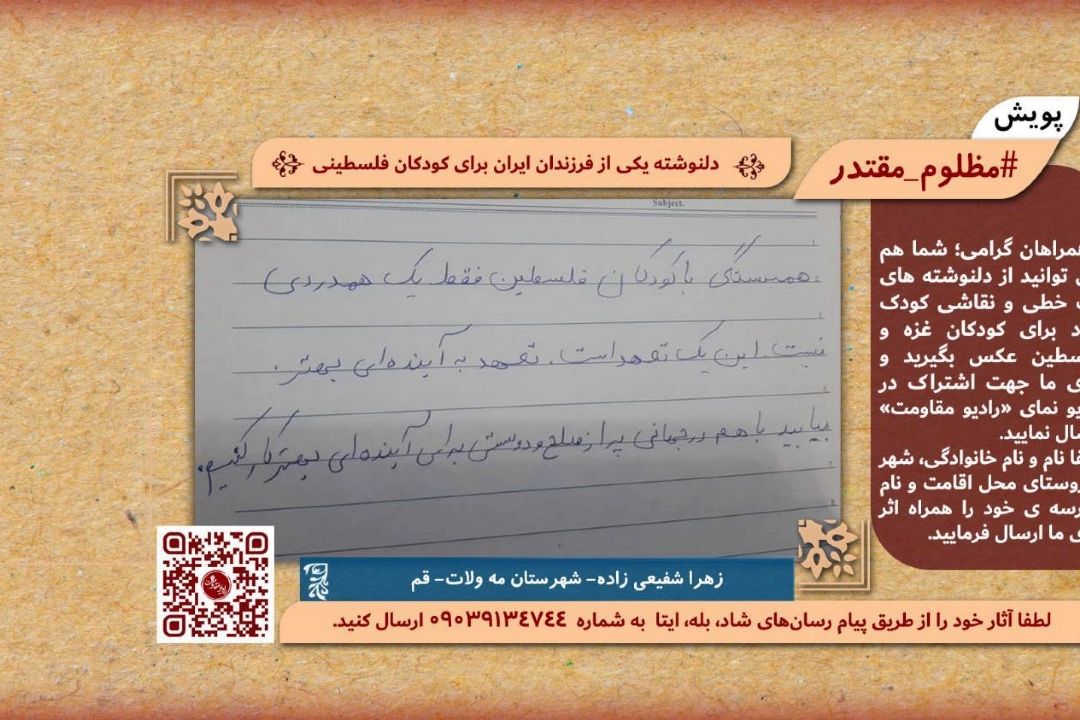 پویش
#مظلوم_مقتدر
دلنوشته یکی از فرزندان ایران برای کودکان فلسطینی
Subject.
همبستگی با کودکان فلسطین فقط یک همدردی
نیست. این یک تعهد است. تعهد به آینده‌ای بهتر.
بیایید با هم در جهانی پر از صلح و دوستی برای آینده‌ای بهتر کار کنیم.
همراهان گرامی؛ شما هم
توانید از دلنوشته های
خطی و نقاشی کودک
برای کودکان غزه و
عکس بگیرید و
ما جهت اشتراک در
نمای «رادیو مقاومت»
نمایید.
نام و نام خانوادگی، شهر
روستای محل اقامت و نام
ی خود را همراه اثر
ما ارسال فرمایید.
زهرا شفیعی زاده- شهرستان مه ولات- قم
لطفا آثار خود را از طریق پیام رسان‌های شاد، بله، ایتا به شماره ۰۹۰۳۹۱۳۴۷۴۴ ارسال کنید.